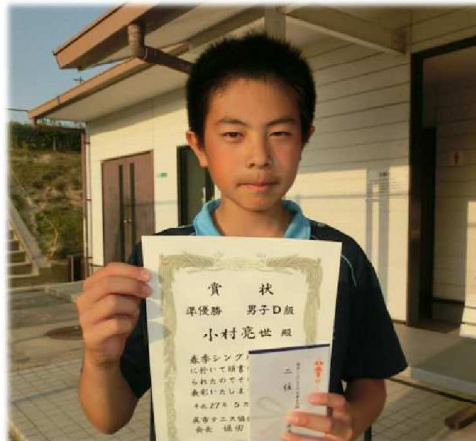 賞状
準優勝 男子D級
小村亮世 殿
春季シングル
に於いて頭書
られたのでそ
表彰いたしま
平成27年5月
呉市テニス協
会長 堀田
二位